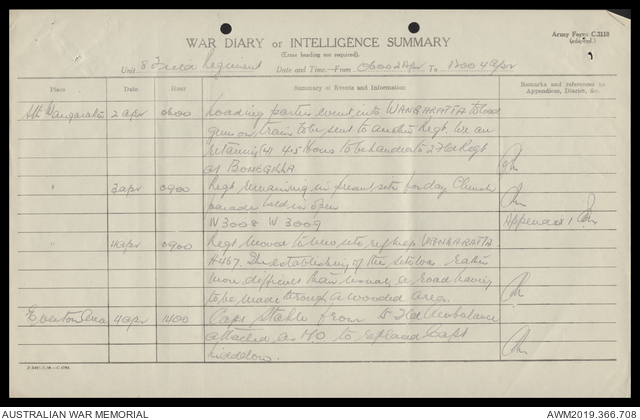 Army Form C.2118
(adapted)
WAR DIARY or INTELLIGENCE SUMMARY
(Erase heading not required).
Unit 8 Field Regiment Date and Time—From 0600 2 Apr To 1200 4 Apr
Place Date Hour Summary of Events and Information Remarks and references to Appendices, District, &c.
Sth Wangaratta 2 Apr 0600 Loading parties went into WANGARATTA to load
guns on train to be sent to another Regt. We are
retaining (4) 4.5 Hows to be handed to 2 Fld Regt
at BONEGILLA
" 3 Apr 0900 Regt remaining in present site for day Church
parade held in open
W3008 W3009 Appendix 1
" 4 Apr 0900 Regt moved to new site ref map WANGARATTA
A467. The establishing of the site was rather
more difficult than usual, a road having
to be made through a wooded area.
Everton Area 4 Apr 1400 Capt from Fld Ambulance
attached as MO to replace Capt
AUSTRALIAN WAR MEMORIAL AWM2019.366.708